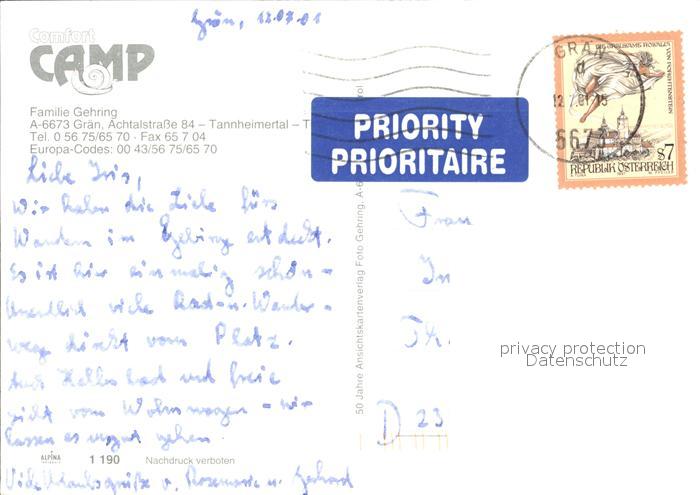 Grän, 12.07.01
Comfort
CAMP
Familie Gehring
A-6673 Grän, Achtalstraße 84 – Tannheimertal – T
Tel. 0 56 75/65 70 · Fax 65 7 04
Europa-Codes: 00 43/56 75/65 70
PRIORITY
PRIORITAIRE
GRÄN
12.7.01 15
6673
DIE GRAUSAME ROSALIA
VON FORCHTENSTEIN
S7
REPUBLIK ÖSTERREICH
Liebe Iris,
Wir haben die Liebe fürs
Wandern im Gebirg entdeckt.
Es ist hier einmalig schön -
Unendlich viele Rad- u. Wander-
weg direkt vom Platz.
Aus Hallenbad und freie
Sicht vom Wohnwagen - wir
lassen es uns gut gehen.
Viele Urlaubsgrüße v. Rosemarie u. Gerhard
Frau
D 23
50 Jahre Ansichtskartenverlag Foto Gehring, A-6
ALPINA
1 190 Nachdruck verboten
privacy protection
Datenschutz